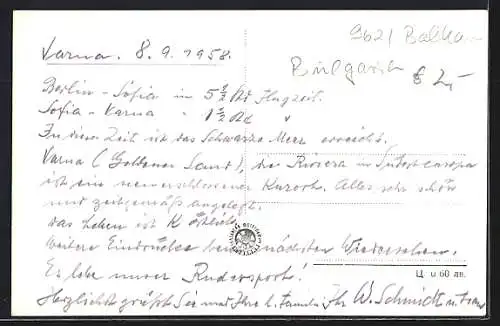 Varna. 8. 9. 1958.
9621 Balkan
Bulgarien 8 2,-
Berlin - Sofia in 5 ½ Std Flugzeit.
Sofia - Varna " 1 ½ Std "
In dieser Zeit ist das Schwarze Meer erreicht.
Varna (Goldener Sand), die Riviera in Südosteuropa
ist ein neuerschlossener Kurort. Alles sehr schön
und zeitgemäß angelegt.
Das Leben ist köstlich
Weitere Eindrücke beim nächsten Wiedersehen.
Es lebe unser Rudersport!
Ц. и 60 лв.
Herzlichst grüßt Sie und Ihre l. Familie Ihr W. Schmidt u. Frau